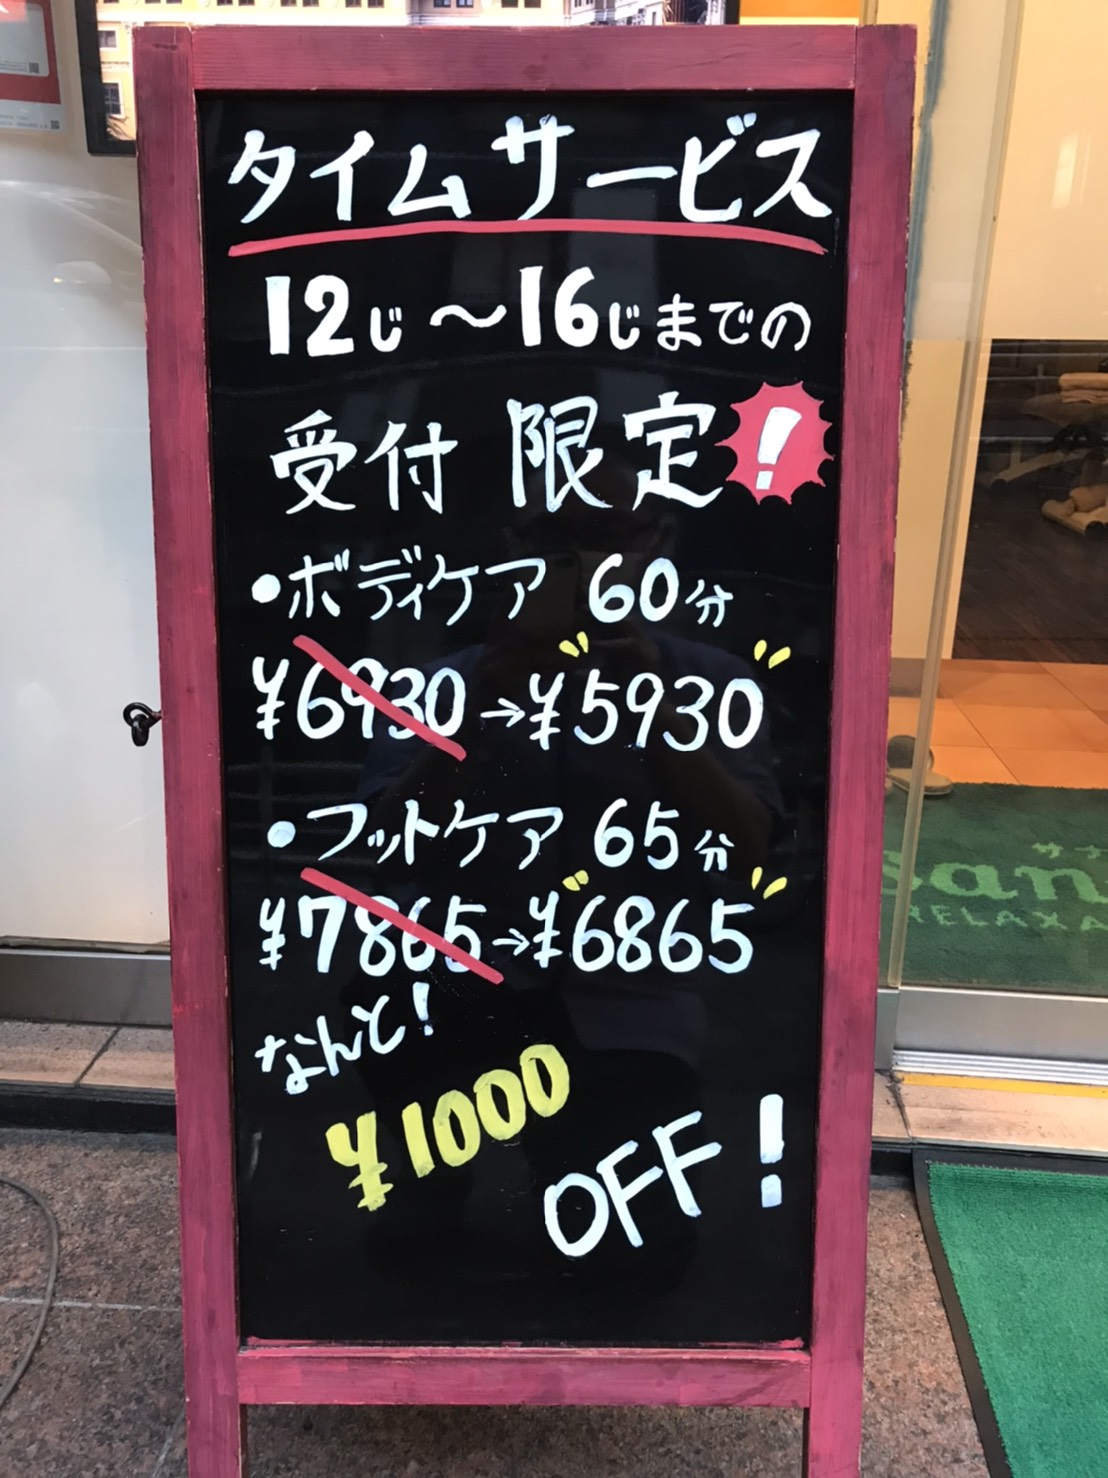 タイムサービス
12じ〜16じまでの
受付 限定!
•ボディケア 60分
¥6930→¥5930
•フットケア 65分
¥7865→¥6865
なんと!
¥1000
OFF!
サナ
san
RELAXA